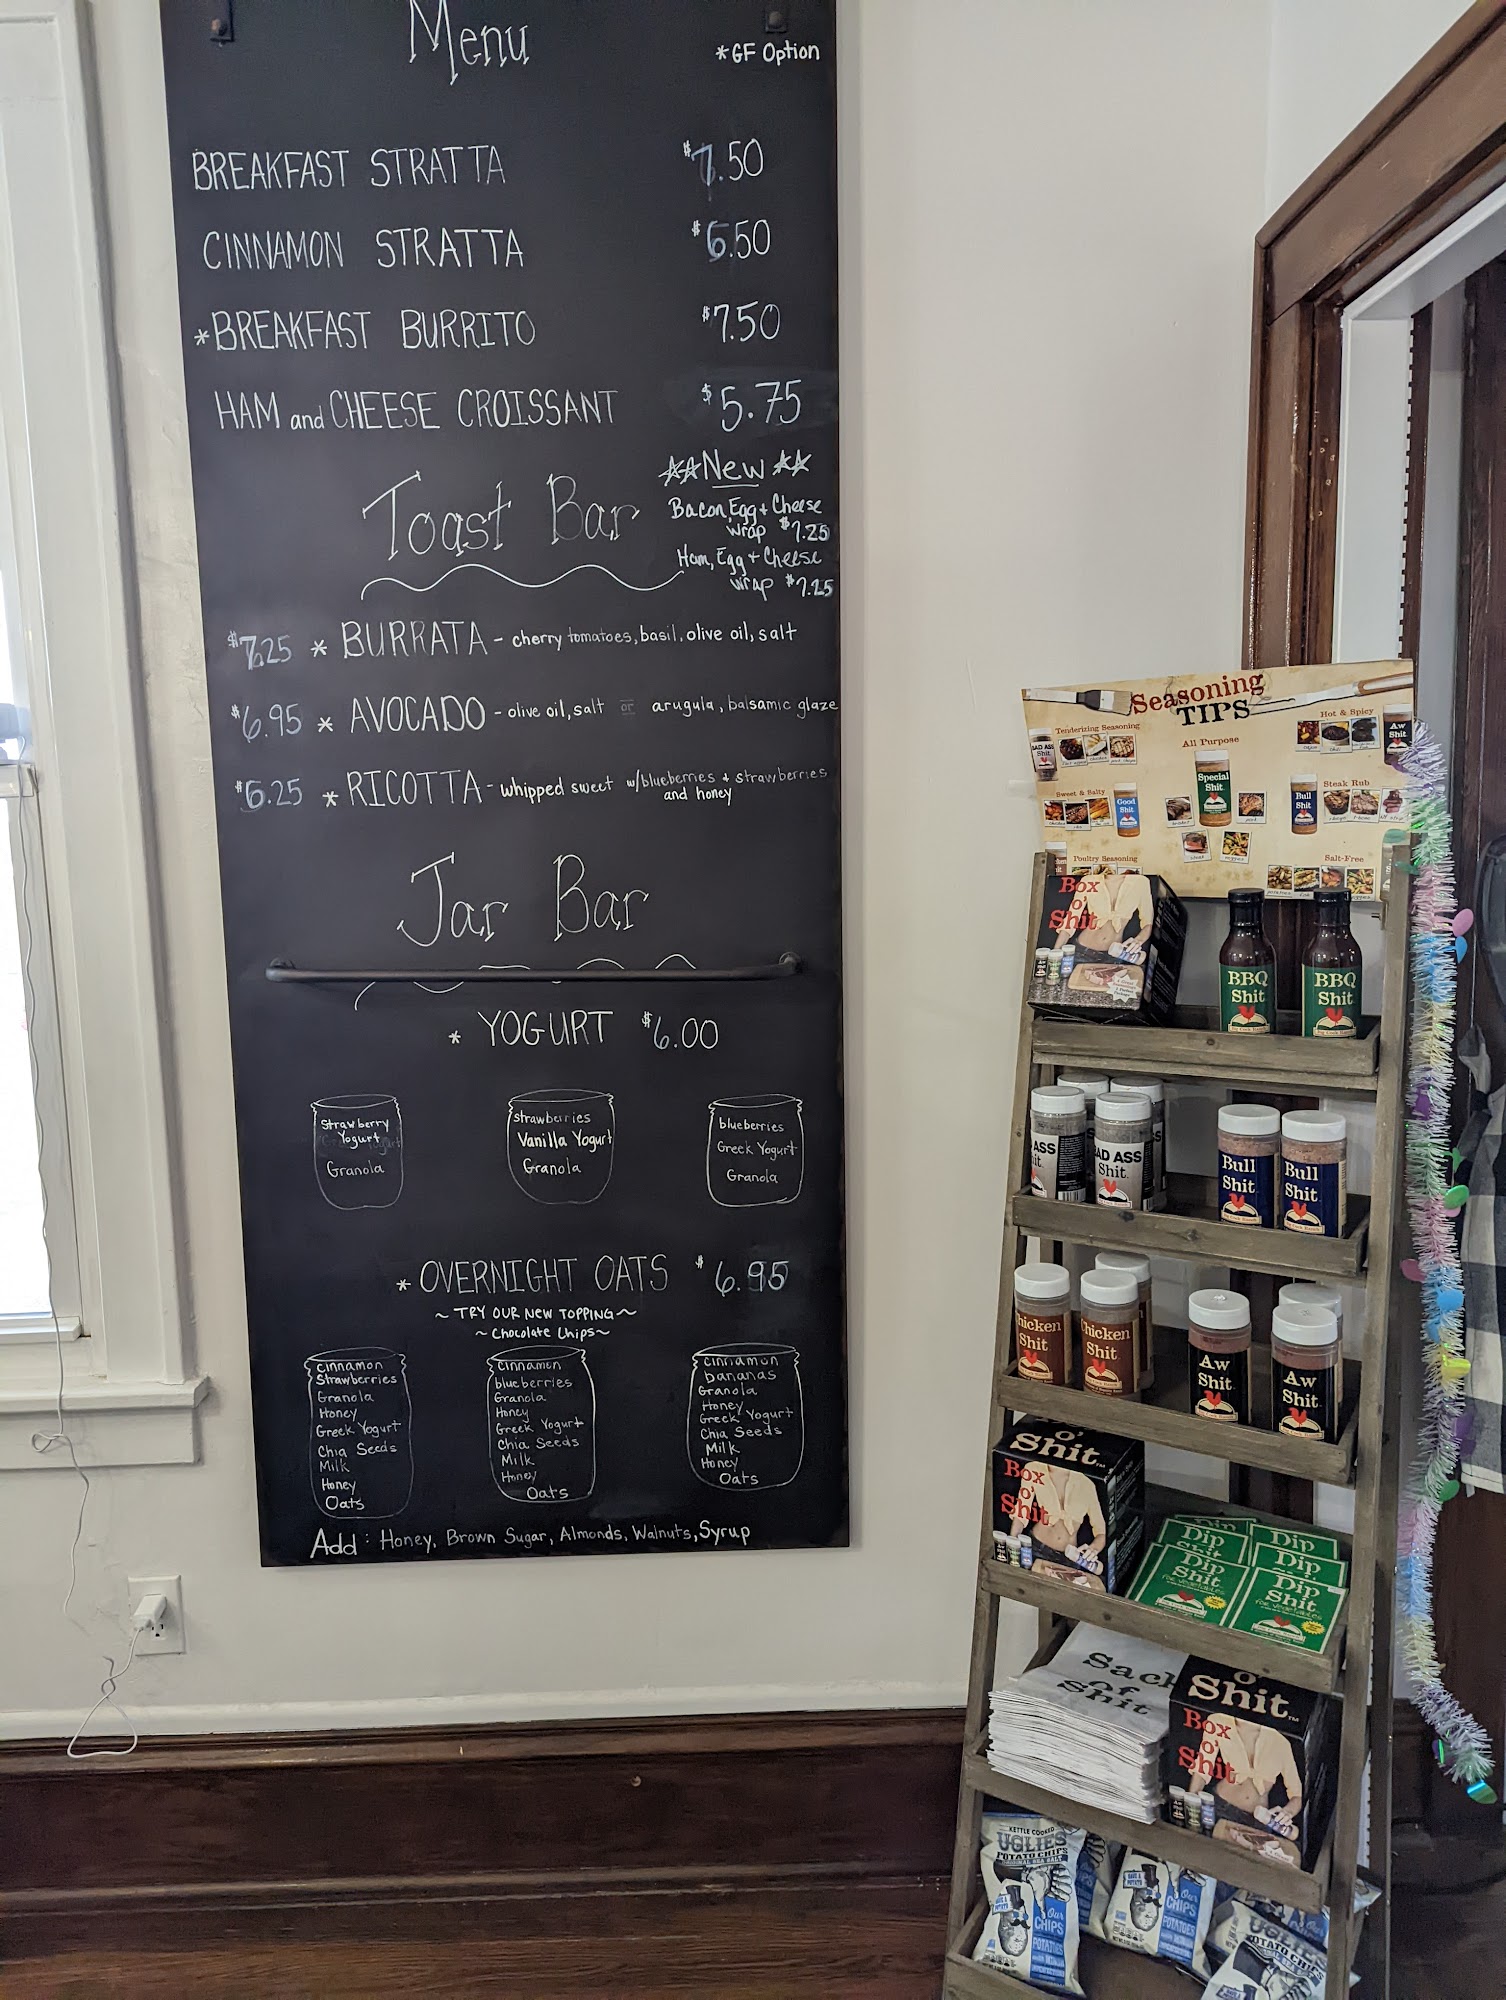 Menu
*GF Option
BREAKFAST STRATTA $7.50
CINNAMON STRATTA $6.50
*BREAKFAST BURRITO $7.50
HAM and CHEESE CROISSANT $5.75
New
Bacon, Egg + Cheese
wrap $7.25
Ham, Egg + Cheese
wrap $7.25
Toast Bar
$7.25 * BURRATA - cherry tomatoes, basil, olive oil, salt
$6.95 * AVOCADO - olive oil, salt or arugula, balsamic glaze
$6.25 * RICOTTA - whipped sweet w/blueberries + strawberries
and honey
Jar Bar
* YOGURT $6.00
Strawberry
Yogurt
Granola
strawberries
Vanilla Yogurt
Granola
blueberries
Greek Yogurt
Granola
* OVERNIGHT OATS $6.95
~ TRY OUR NEW TOPPING ~
~ Chocolate Chips ~
cinnamon
Strawberries
Granola
Honey
Greek Yogurt
Chia Seeds
Milk
Honey
Oats
cinnamon
blueberries
Granola
Honey
Greek Yogurt
Chia Seeds
Milk
Honey
Oats
cinnamon
bananas
Granola
Honey
Greek Yogurt
Chia Seeds
Milk
Honey
Oats
Add: Honey, Brown Sugar, Almonds, Walnuts, Syrup
Seasoning
TIPS
Tenderizing Seasoning
All Purpose
Hot & Spicy
BAD ASS
Shit
Special
Shit
Aw
Shit
Sweet & Salty
Good
Shit
Bull
Shit
Steak Rub
Poultry Seasoning
Salt-Free
Box
o'
Shit
BBQ
Shit
BBQ
Shit
BAD ASS
Shit
Bull
Shit
Bull
Shit
Chicken
Shit
Chicken
Shit
Aw
Shit
Aw
Shit
O'
Shit™
Box
o'
Shit
Dip
Shit
Dip
Dip
Dip
Shit
for vegetables
Dip
Shit
for vegetables
Sack
of
Shit
O'
Shit™
Box
o'
Shit
KETTLE COOKED
UGLIES
POTATO CHIPS
ORIGINAL SEA SALT
Our
CHIPS
POTATOES
Our
CHIPS
POTATOES
UGLIES
POTATO CHIPS